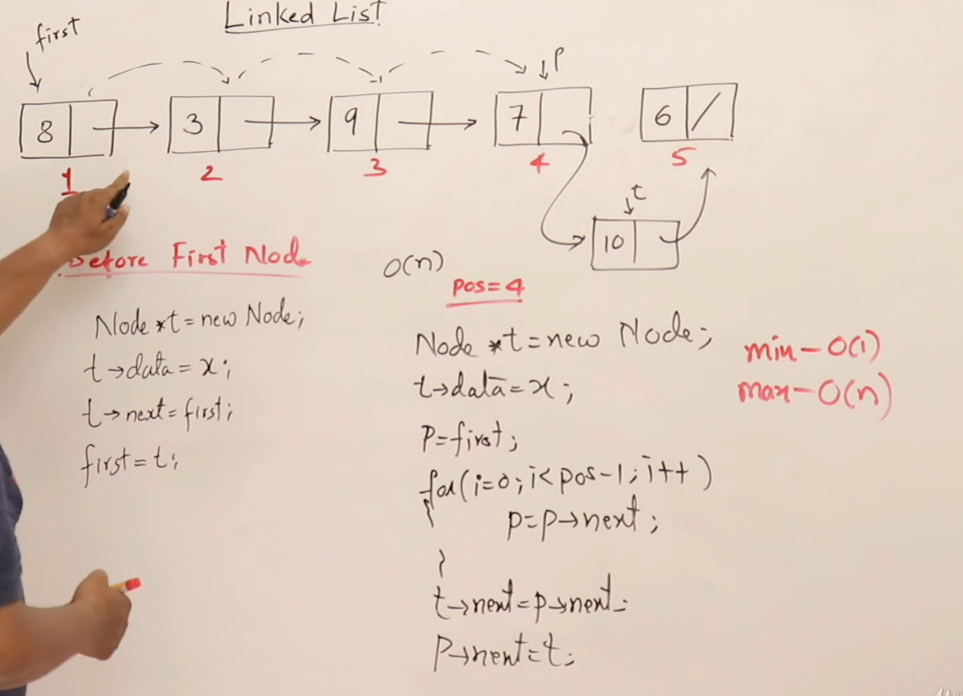 Linked List
first
P
8
3
9
7
6 /
1
2
3
4
5
t
10
Before First Node
O(n)
pos=4
Node *t=new Node;
t→data=x;
t→next=first;
first=t;
Node *t=new Node;
t→data=x;
P=first;
for(i=0;i<pos-1;i++)
{
p=p→next;
}
t→next=p→next;
P→next=t;
min-O(1)
max-O(n)